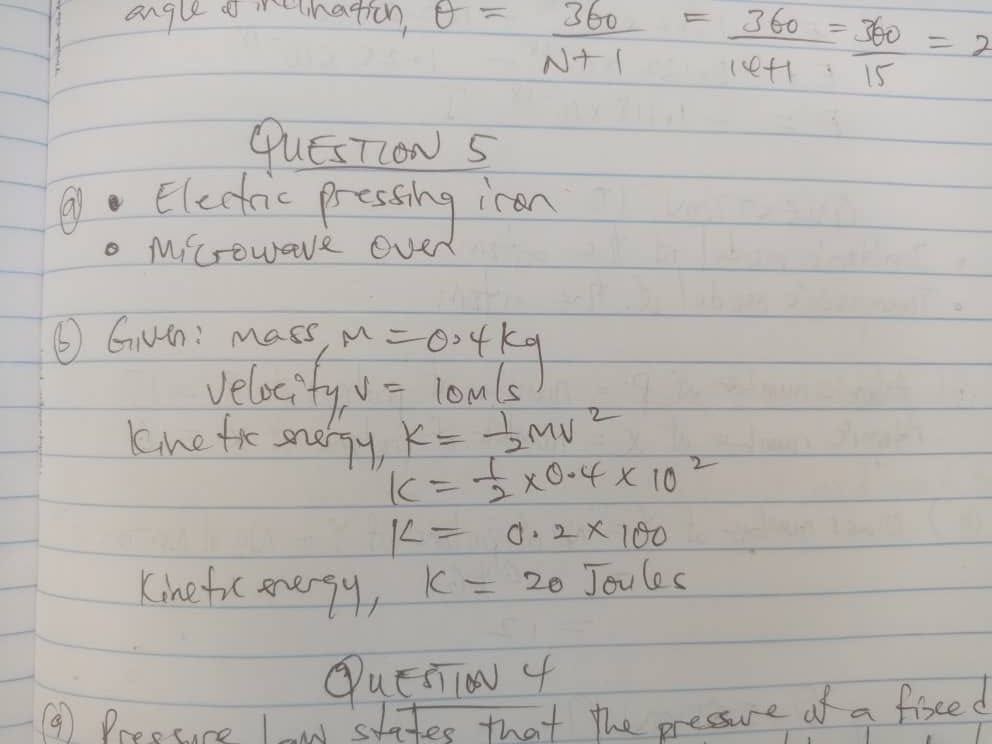 angle of inclination, θ = 360/N+1 = 360/14+1 = 360/15 = 2
QUESTION 5
(a) • Electric pressing iron
• Microwave oven
(b) Given: mass, M = 0.4kg
velocity, v = 10m/s
Kinetic energy, K = 1/2 MV²
K = 1/2 × 0.4 × 10²
K = 0.2 × 100
Kinetic energy, K = 20 Joules
QUESTION 4
(a) Pressure law states that the pressure of a fixed